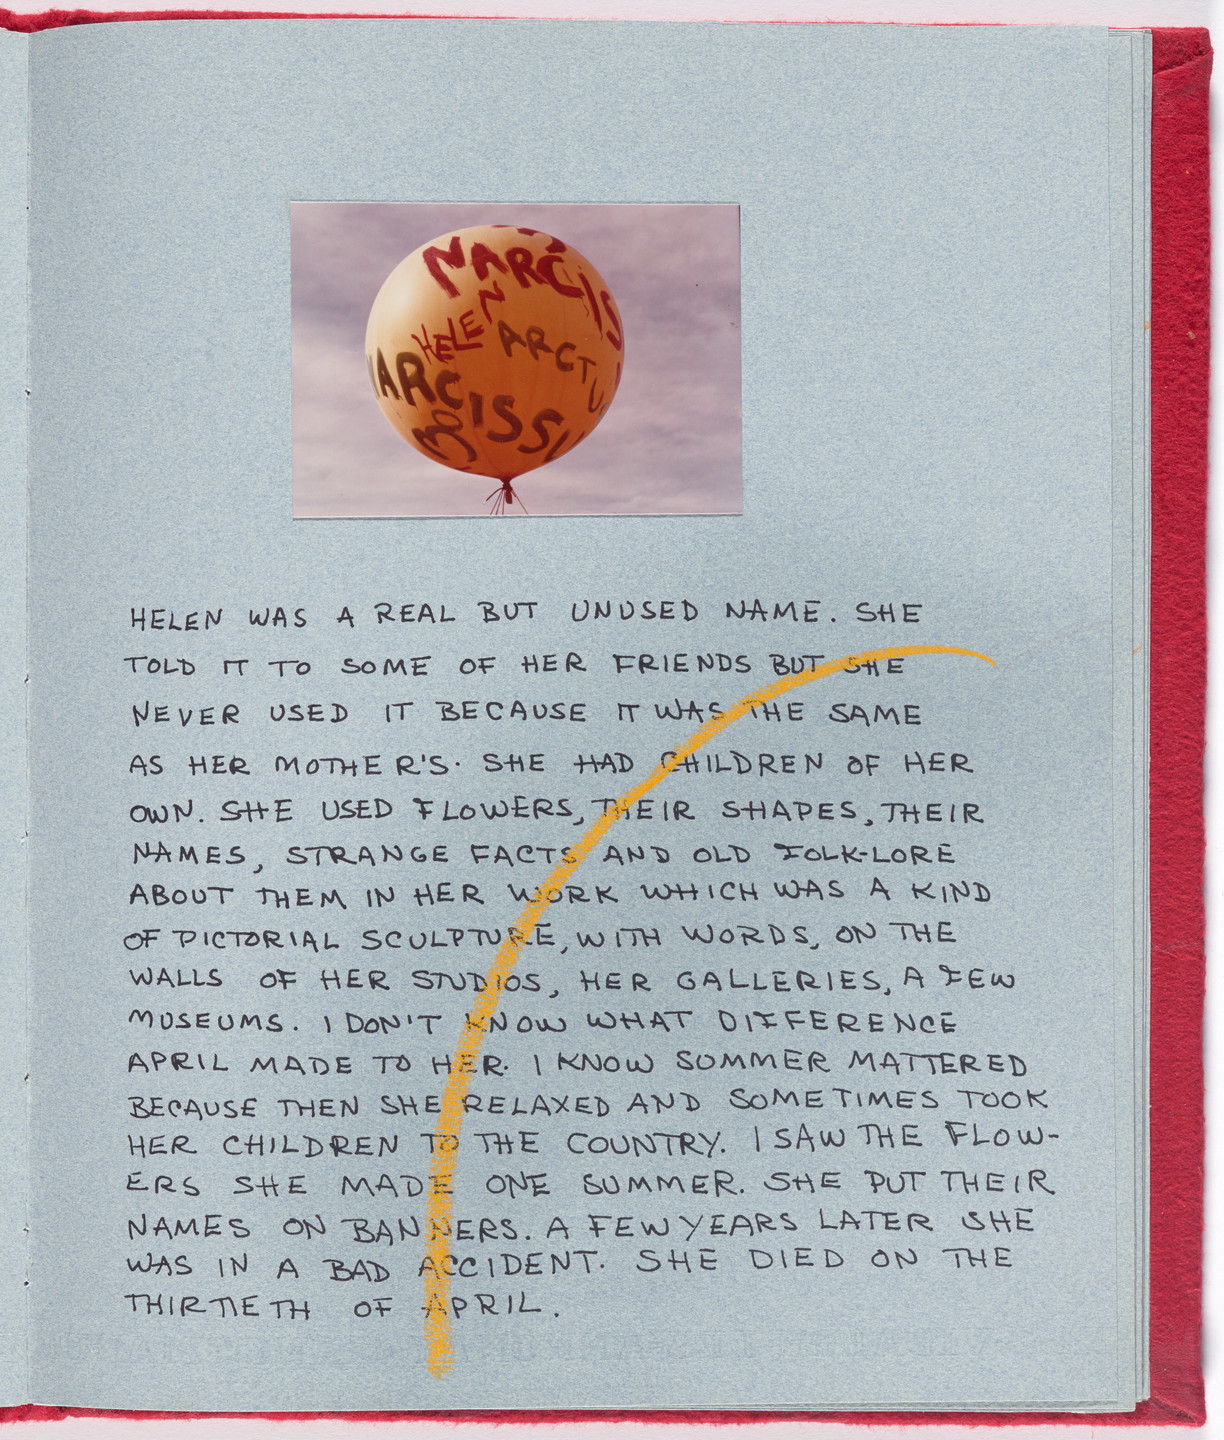 NARCIS
HELEN
ARCTU
NARCISSU
HELEN WAS A REAL BUT UNUSED NAME. SHE
TOLD IT TO SOME OF HER FRIENDS BUT SHE
NEVER USED IT BECAUSE IT WAS THE SAME
AS HER MOTHER'S. SHE HAD CHILDREN OF HER
OWN. SHE USED FLOWERS, THEIR SHAPES, THEIR
NAMES, STRANGE FACTS AND OLD FOLK-LORE
ABOUT THEM IN HER WORK WHICH WAS A KIND
OF PICTORIAL SCULPTURE, WITH WORDS, ON THE
WALLS OF HER STUDIOS, HER GALLERIES, A FEW
MUSEUMS. I DON'T KNOW WHAT DIFFERENCE
APRIL MADE TO HER. I KNOW SUMMER MATTERED
BECAUSE THEN SHE RELAXED AND SOMETIMES TOOK
HER CHILDREN TO THE COUNTRY. I SAW THE FLOW-
ERS SHE MADE ONE SUMMER. SHE PUT THEIR
NAMES ON BANNERS. A FEW YEARS LATER SHE
WAS IN A BAD ACCIDENT. SHE DIED ON THE
THIRTIETH OF APRIL.